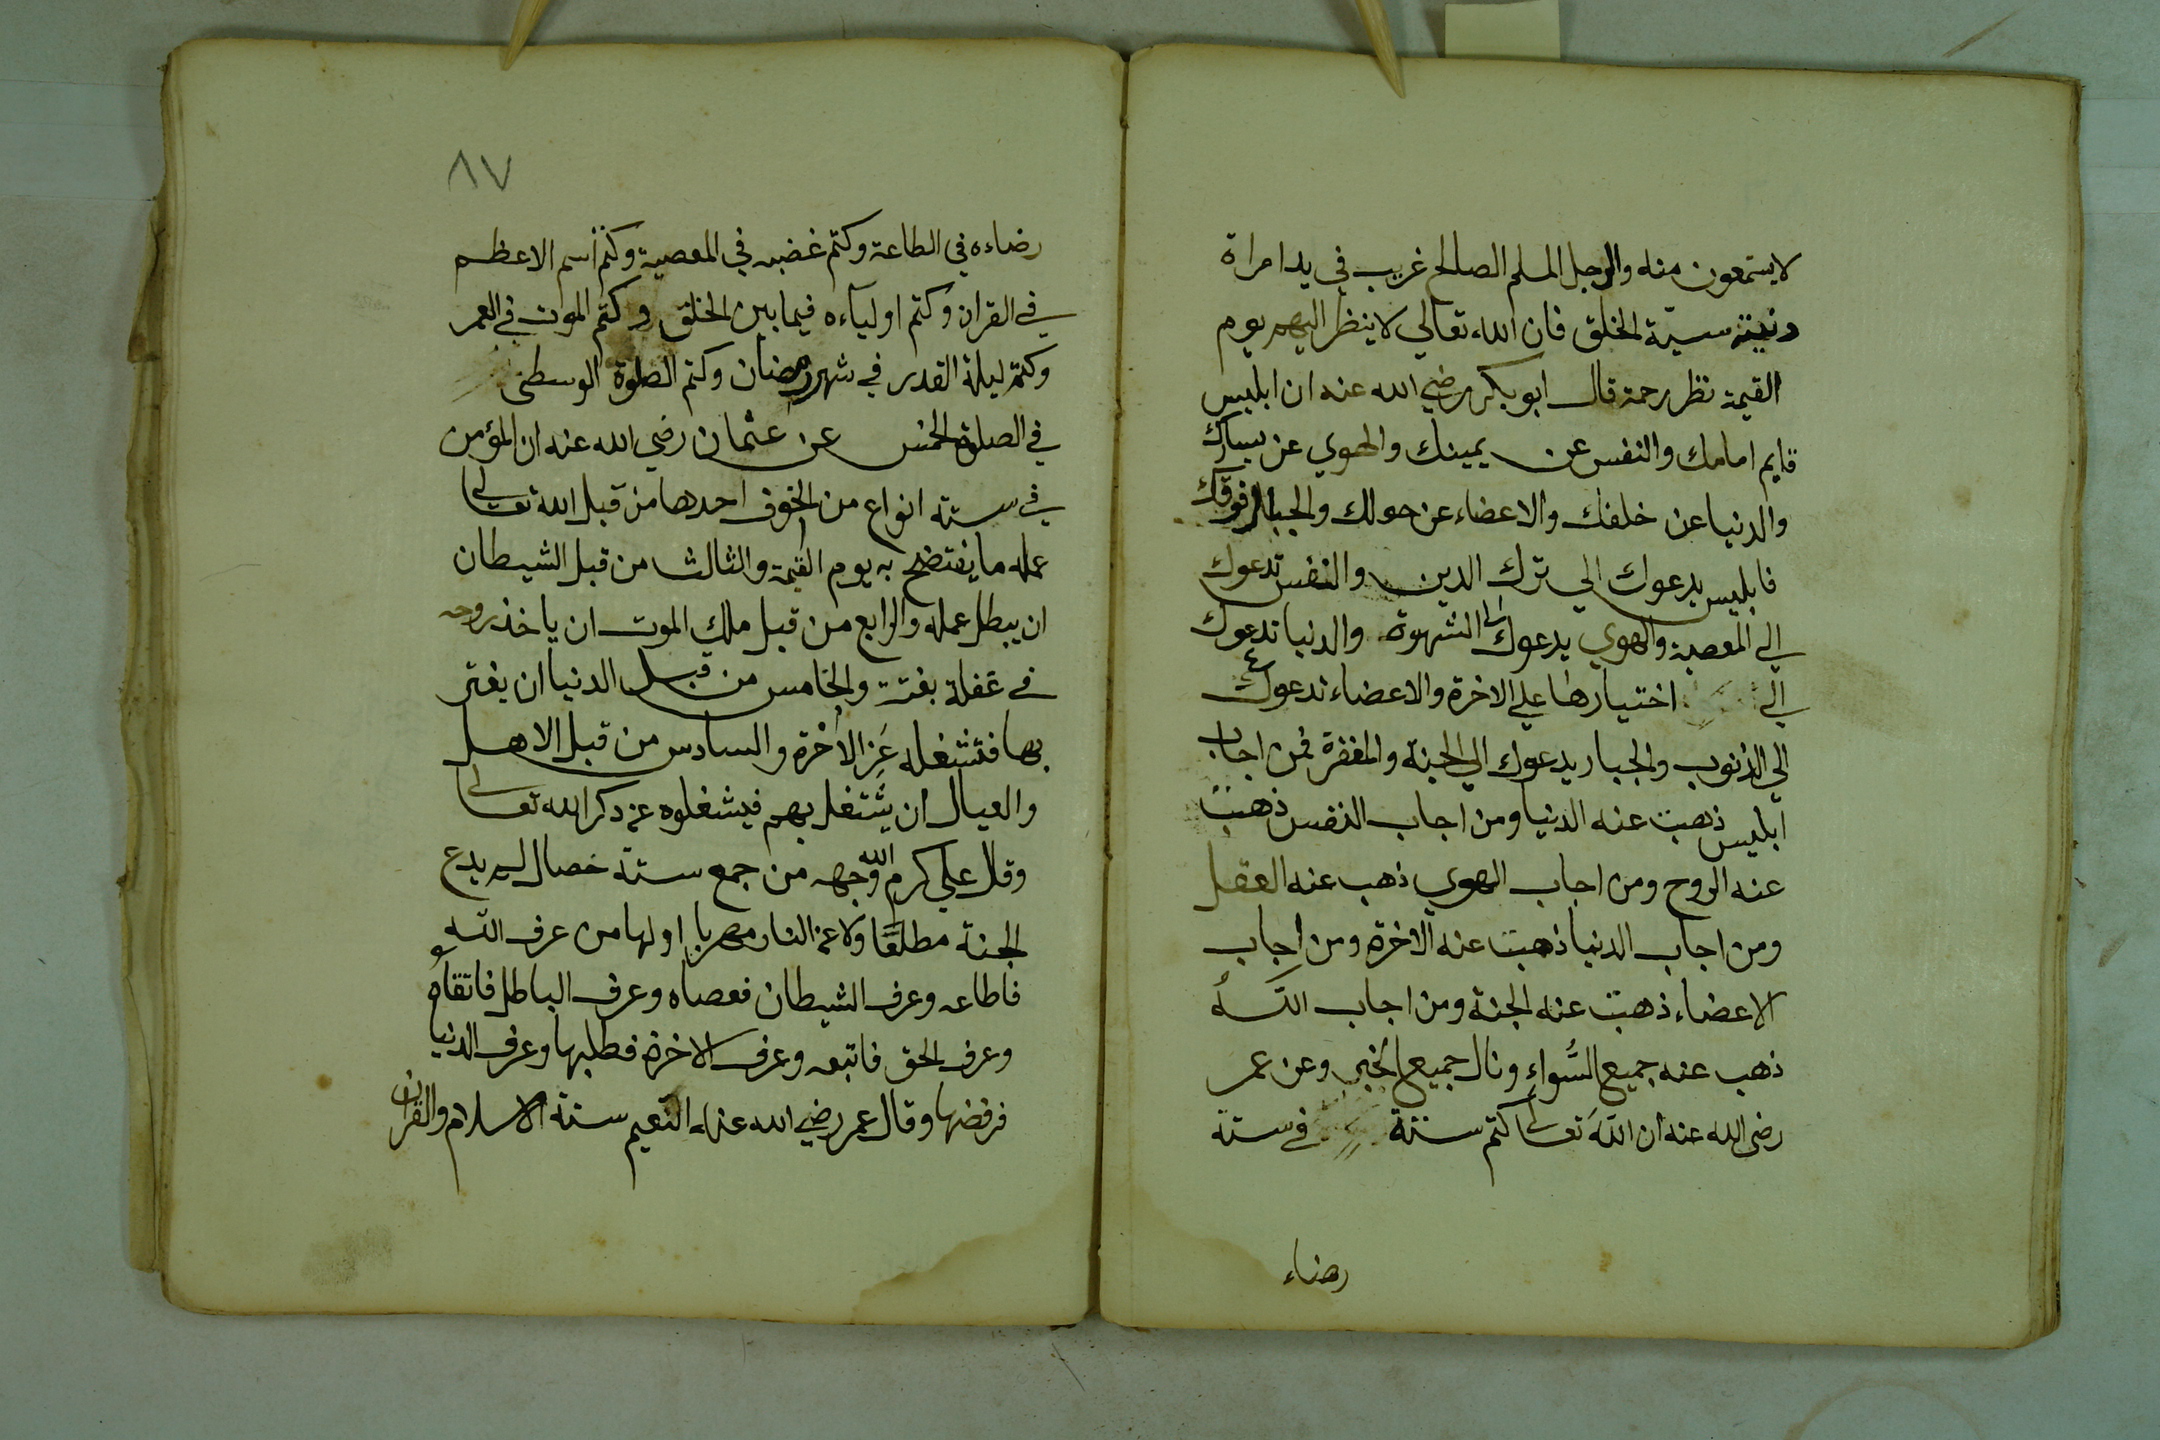 لا يستمعون منه والرجل المسلم الصالح غريب في يد امراة
دنية سيّة الخلق فان الله تعالي لا ينظر اليهم يوم
القيمة نظر رحمة قال ابو بكر رضي الله عنه ان ابليس
قايم امامك والنفس عن يمينك والهوي عن يسارك
والدنيا عن خلفك والاعضاء عن حولك والجبار فوقك
فابليس يدعوك الي ترك الدين والنفس تدعوك
الي المعصية والهوي يدعوك الى الشهوة والدنيا تدعوك
الي اختيارها علي الاخرة والاعضاء تدعوك
الي الذنوب والجبار يدعوك الي الجنة والمغفرة فمن اجاب
ابليس ذهبت عنه الدنيا ومن اجاب النفس ذهبت
عنه الروح ومن اجاب الهوي ذهب عنه العقل
ومن اجاب الدنيا ذهبت عنه الاخرة ومن اجاب
الاعضاء ذهبت عنه الجنة ومن اجاب اللّه
ذهب عنه جميع السُّواءِ ونال جميع الخير وعن عمر
رضى الله عنه ان اللّه تعالى كتم ستة في ستة
رضاء
٨٧
رضاءه في الطاعة وكتم غضبه في المعصية وكتم اسم الاعظم
في القران وكتم اولياءه فيما بين الخلق وكتم الموت في العمر
وكتم ليلة القدر في شهر رمضان وكتم الصلوة الوسطى
في الصلوة الخمس عن عثمان رضي الله عنه ان المؤمن
في ستة انواع من الخوف احدها من قبل الله تعالى
عمله ما يفتضح به يوم القيمة والثالث من قبل الشيطان
ان يبطل عمله والرابع من قبل ملك الموت ان ياخذ روحه
في غفلة بغتة والخامس من قبل الدنيا ان يغتر
بها فتشغله عَن الاخرة والسادس من قبل الاهل
والعيال ان يشتغل بهم فيشغلوه عن ذكر الله تعالى
وقال علي كرم الله وجهه من جمع ستة خصال لم يدع
الجنة مطلقًا ولا عن النار مهربا اولها من عرف اللّه
فاطاعه وعرف الشيطان فعصاه وعرف الباطل فاتقاه
وعرف الحق فاتبعه وعرف الاخرة فطلبها وعرف الدنيا
فرفضها وقال عمر رضي الله عنه النعيم ستة الاسلام والقران